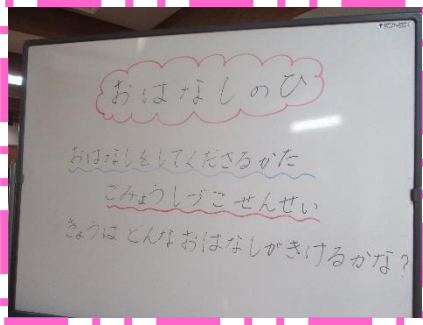 おはなしのひ
おはなしをしてくださるかた
ごみょうしづこ せんせい
きょうは どんな おはなしがきけるかな?